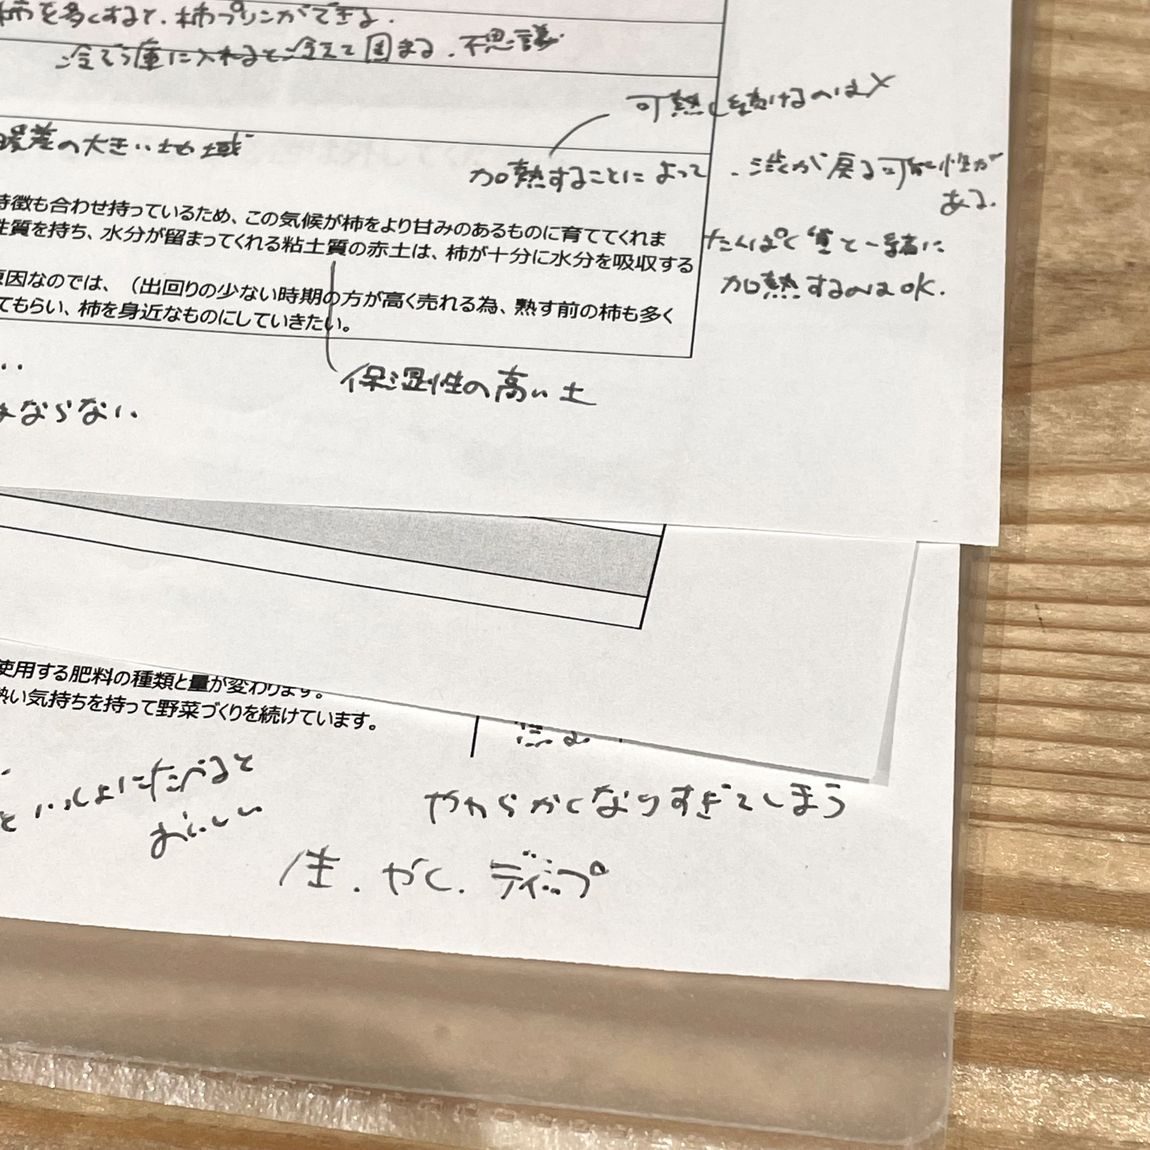 柿を多くすると、柿プリンができる.
冷ぞう庫に入れると冷えて固まる.不思議
可熱し続けるのは×
暖差の大きい地域
加熱することによって
.渋が戻る可能性が
ある.
特徴も合わせ持っているため、この気候が柿をより甘みのあるものに育ててくれま
性質を持ち、水分が留まってくれる粘土質の赤土は、柿が十分に水分を吸収する
たんぱく質と一緒に
加熱するのはOK.
原因なのでは、（出回りの少ない時期の方が高く売れる為、熟す前の柿も多く
てもらい、柿を身近なものにしていきたい。
保湿性の高い土
はならない
使用する肥料の種類と量が変わります。
熱い気持ちを持って野菜づくりを続けています。
といっしょにたべると
おいしい
やわらかくなりすぎてしまう
生.やく.ディップ